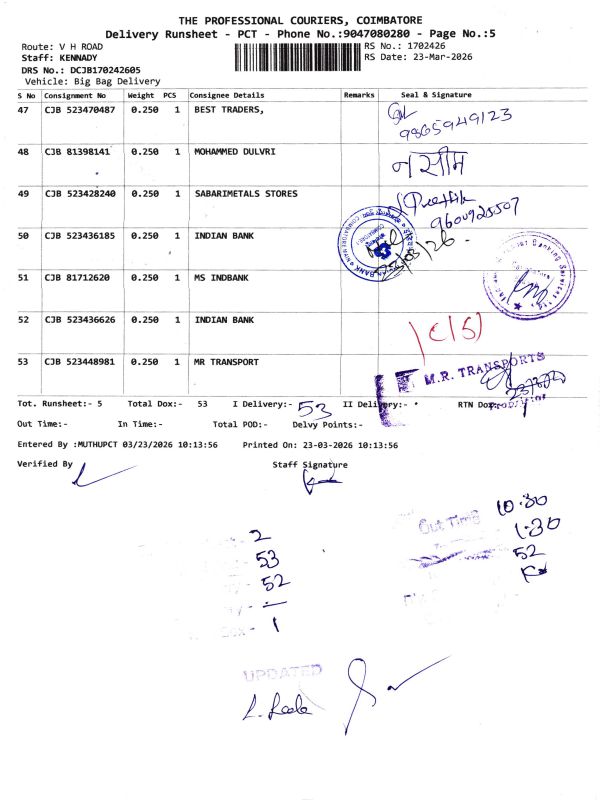 THE PROFESSIONAL COURIERS, COIMBATORE
Delivery Runsheet - PCT - Phone No.:9047080280 - Page No.:5
Route: V H ROAD RS No.: 1702426
Staff: KENNADY RS Date: 23-Mar-2026
DRS No.: DCJB170242605
Vehicle: Big Bag Delivery
S No Consignment No Weight PCS Consignee Details Remarks Seal & Signature
47 CJB 523470487 0.250 1 BEST TRADERS,
9865949123
48 CJB 81398141 0.250 1 MOHAMMED DULVRI
नसीम
49 CJB 523428240 0.250 1 SABARIMETALS STORES
9600925507
50 CJB 523436185 0.250 1 INDIAN BANK
51 CJB 81712620 0.250 1 MS INDBANK
52 CJB 523436626 0.250 1 INDIAN BANK
53 CJB 523448981 0.250 1 MR TRANSPORT
M.R. TRANSPORTS
Tot. Runsheet:- 5 Total Dox:- 53 I Delivery:- 53 II Delivery:- * RTN Dox:-
Out Time:- In Time:- Total POD:- Delvy Points:-
Entered By :MUTHUPCT 03/23/2026 10:13:56 Printed On: 23-03-2026 10:13:56
Verified By Staff Signature
Out Time 10.30
1.30
2
53 52
52
1
UPDATED